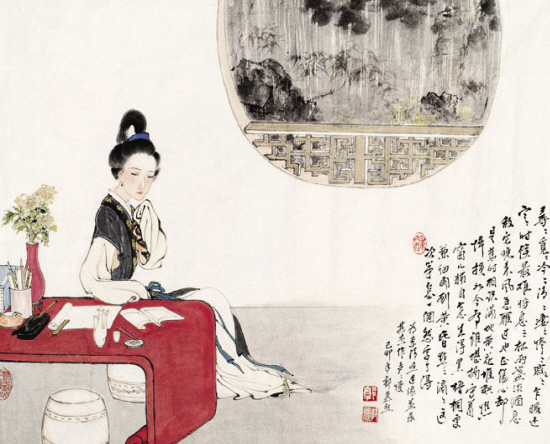 尋〻覓〻冷〻清〻淒〻慘〻戚〻乍暖還
寒時候最難將息三杯兩盞淡酒怎
敵他晚來風急雁過也正傷心却
是舊時相識滿地黃花堆積憔
悴損如今有誰堪摘守着
窗兒獨自怎生得黑梧桐更
兼細雨到黃昏點〻滴〻這
次第怎一個愁字了得
己卯年